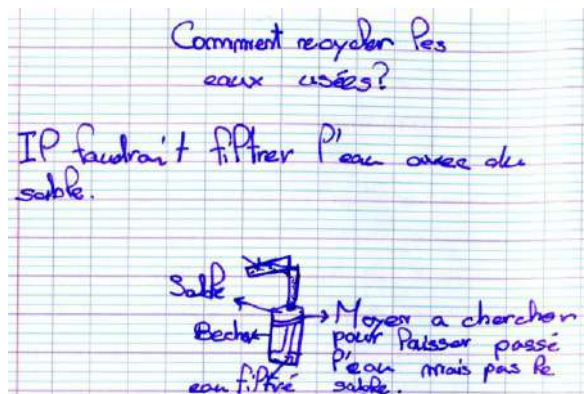 Comment recycler les
eaux usées?
Il faudrait filtrer l'eau avec du
sable.
Sable
Becher
eau filtré
Moyen a chercher
pour laisser passé
l'eau mais pas le
sable.